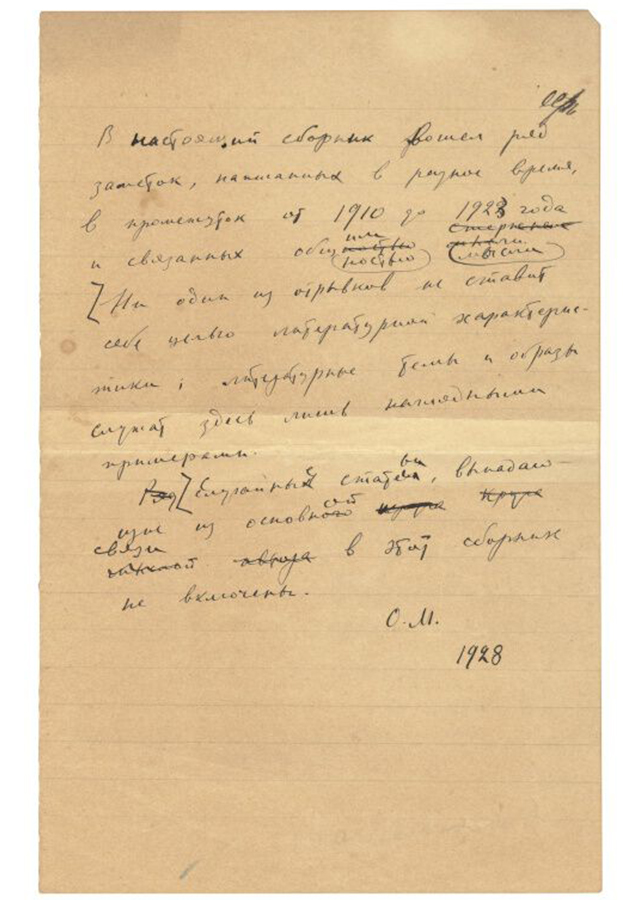 В настоящий сборник вошел ряд
заметок, написанных в разное время,
в промежуток от 1910 до 1923 года
и связанных общностью мысли
Ни один из отрывков не ставит
себе целью литературной характерис-
тики; литературные темы и образы
служат здесь лишь наглядными
примерами.
Ряд Случайные статьи, выпадаю-
щие из основной
связи
в этот сборник
не включены.
О. М.
1928